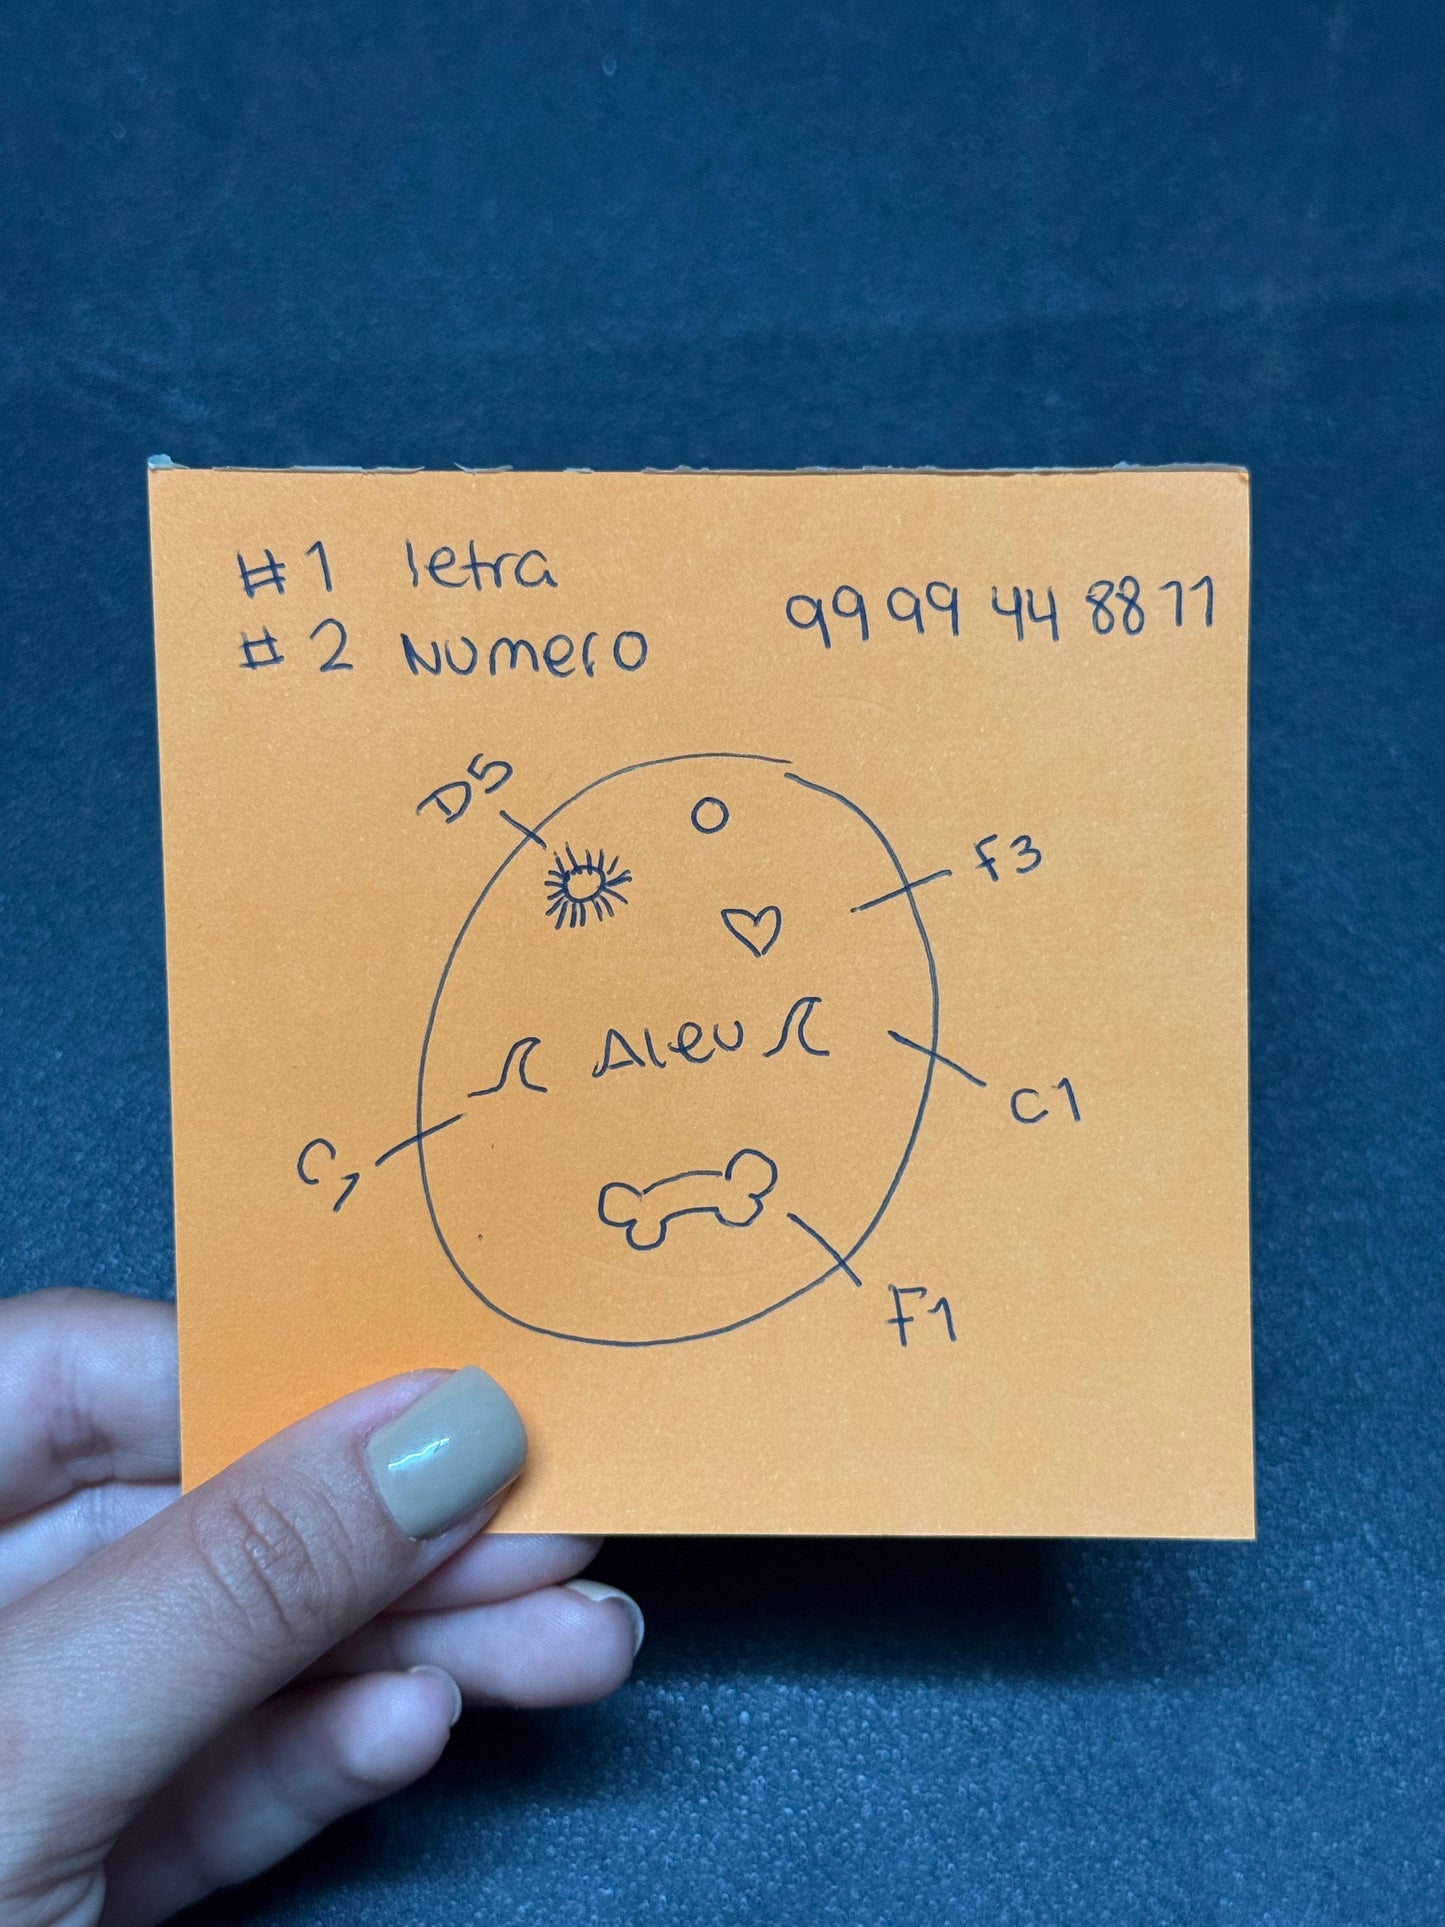 #1 letra
#2 Numero
99 99 44 88 11
D5
F3
Aleu
C1
C1
F1